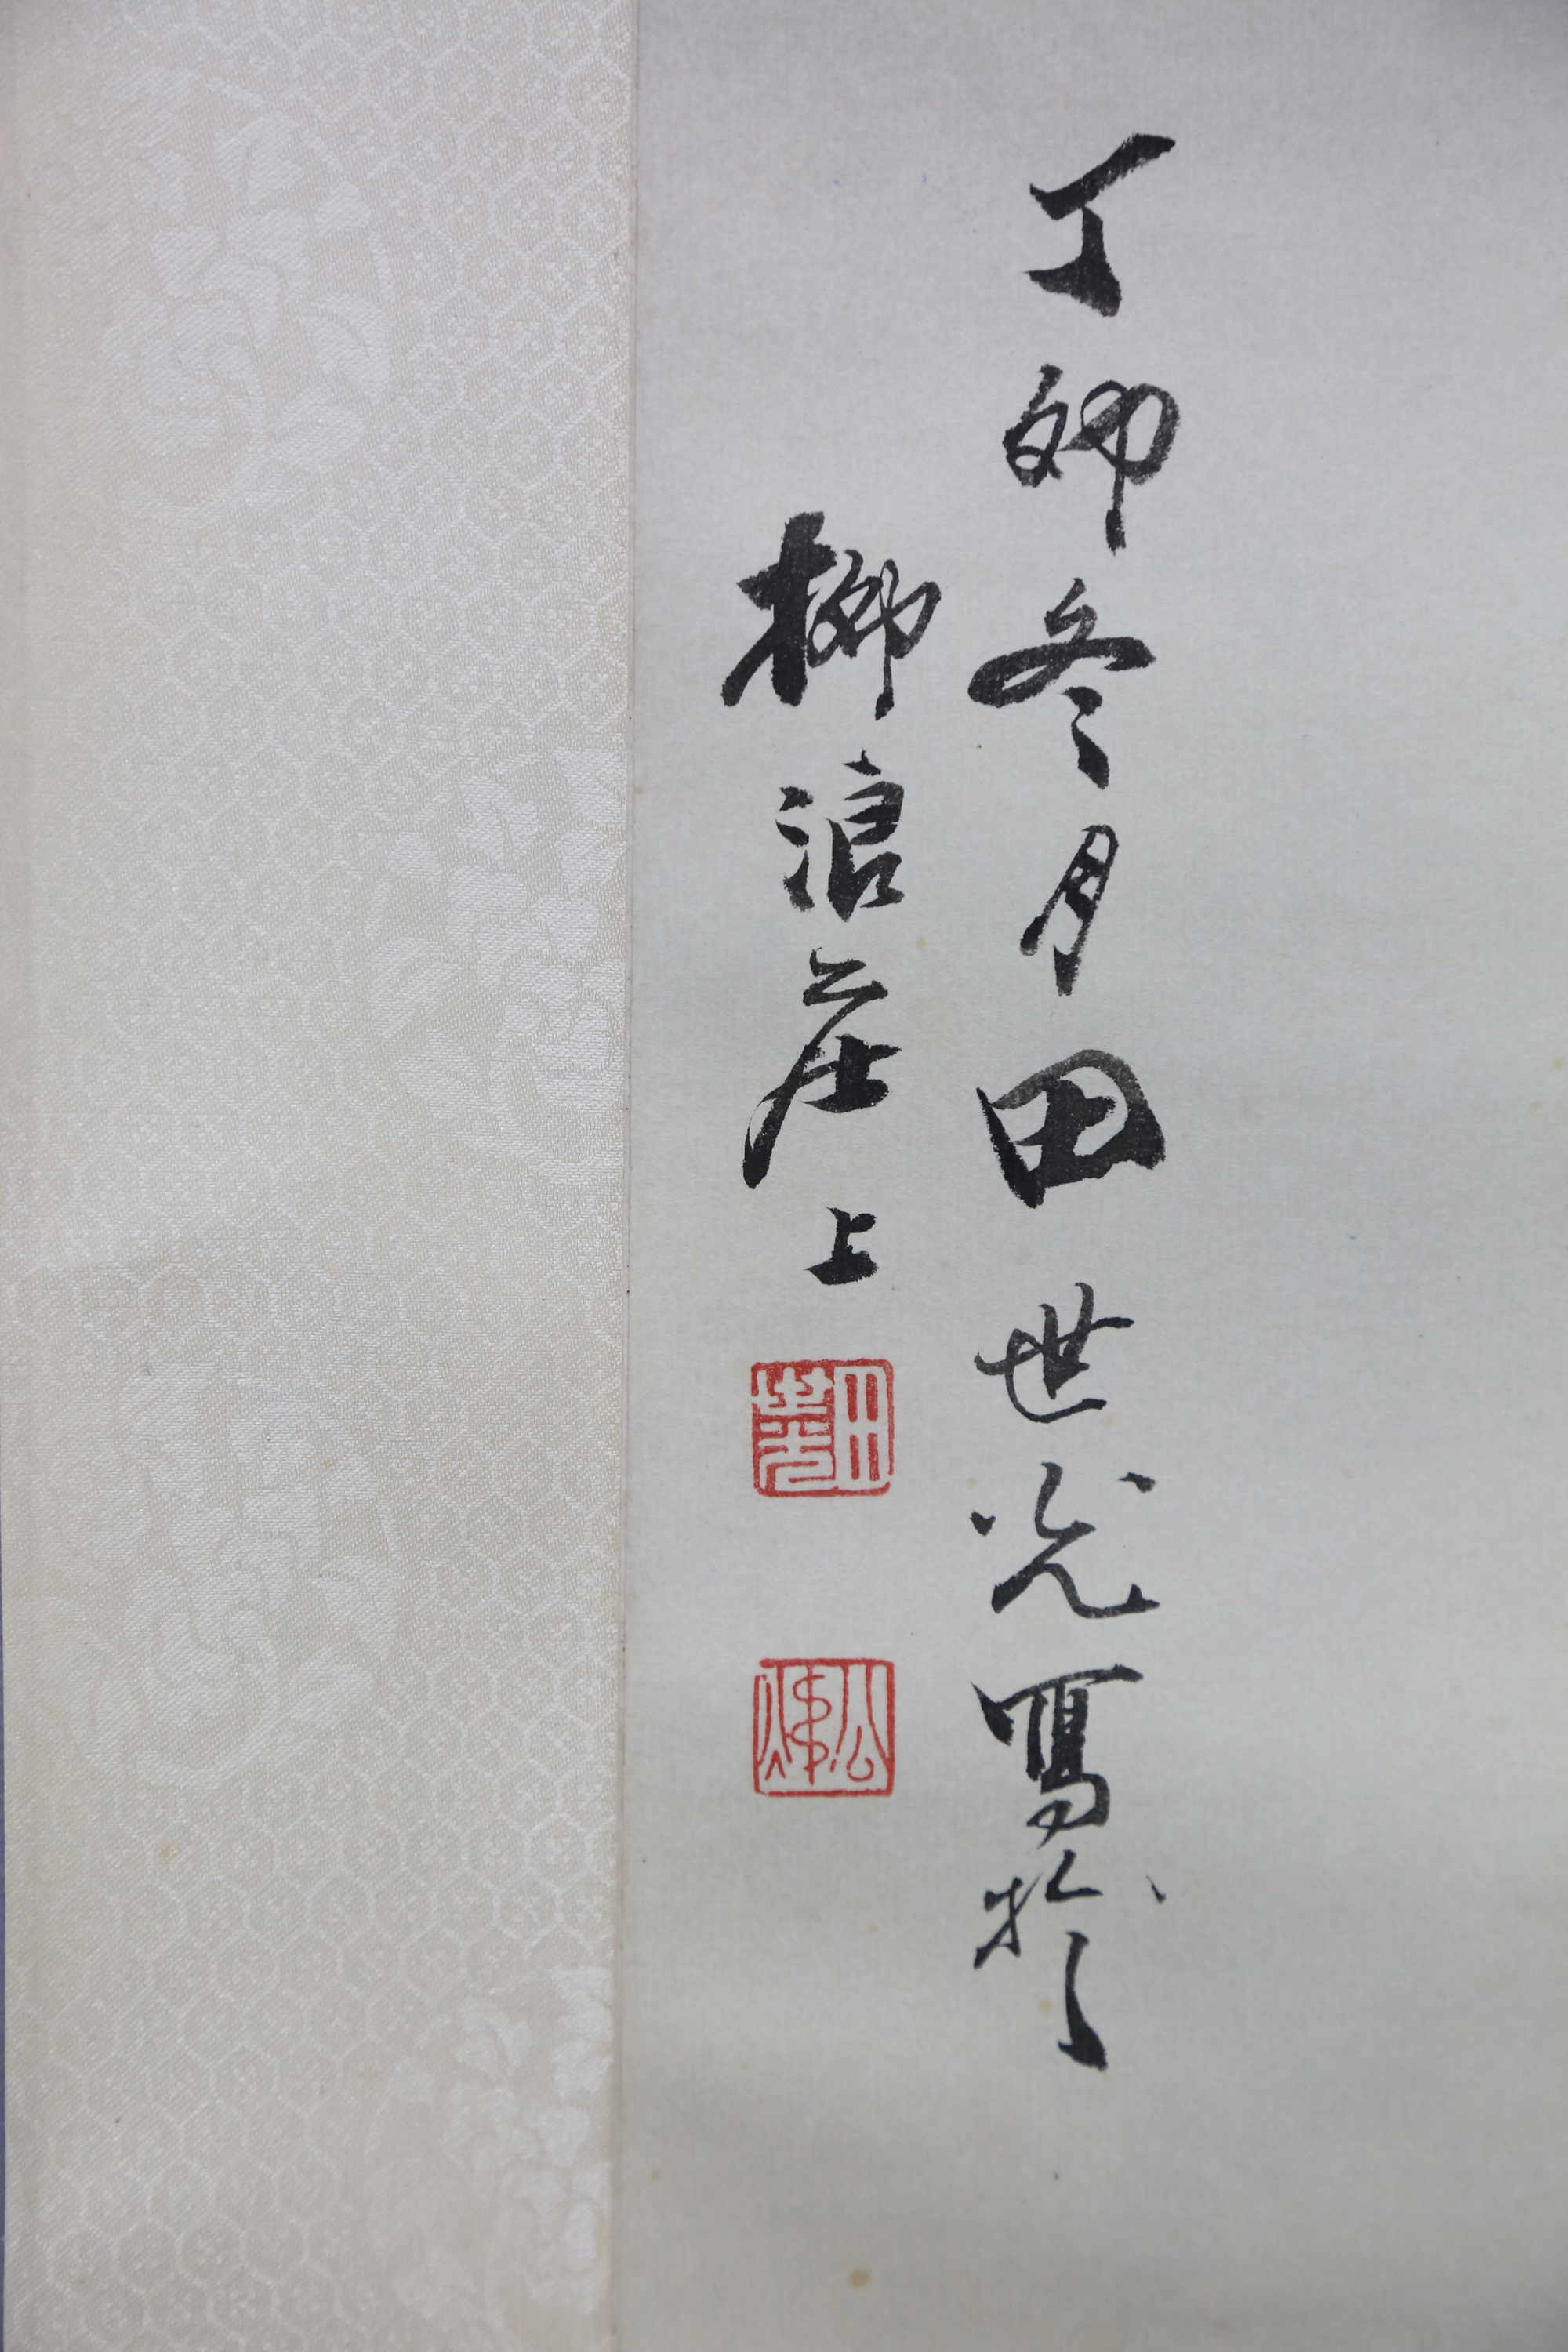 丁卯冬月田世光寫於
柳浪莊上
田世光
公煒